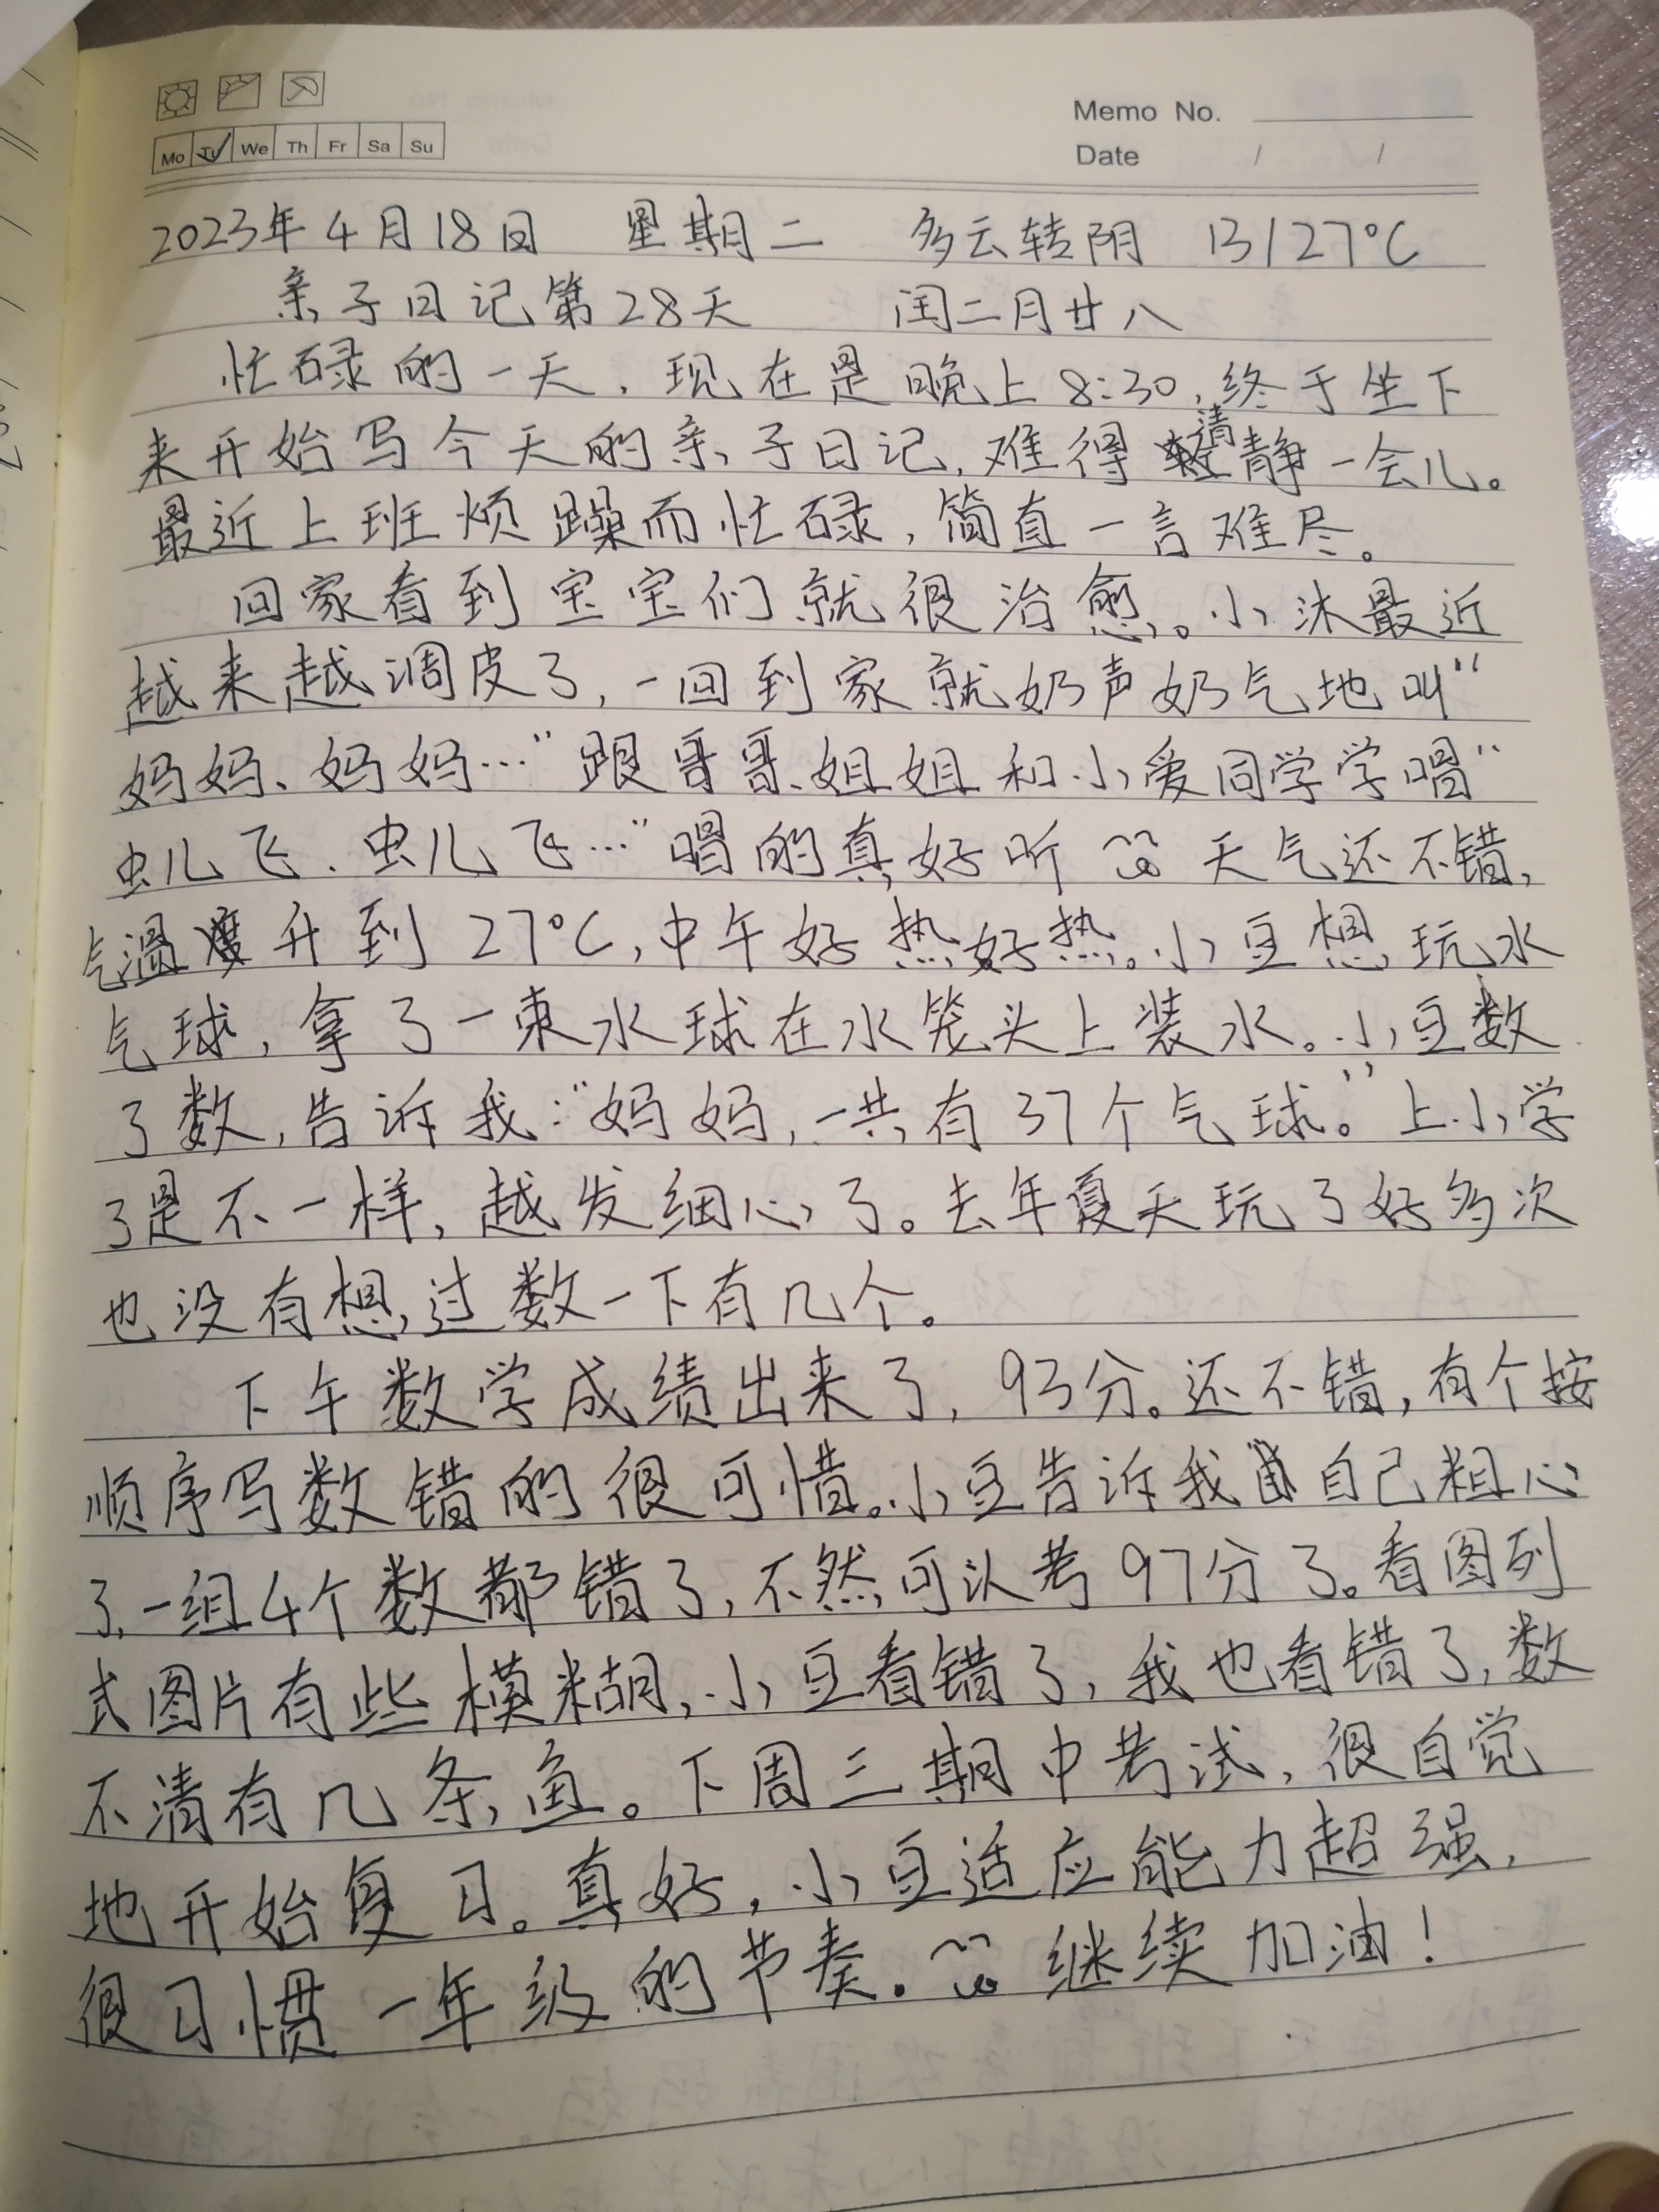 Memo No.
Mo Tu We Th Fr Sa Su
Date / /
2023年4月18日 星期二 多云转阴 13/27℃
亲子日记第28天 闰二月廿八
忙碌的一天，现在是晚上8:30，终于坐下
来开始写今天的亲子日记，难得清静一会儿。
最近上班烦躁而忙碌，简直一言难尽。
回家看到宝宝们就很治愈。小沐最近
越来越调皮了，一回到家就奶声奶气地叫“
妈妈、妈妈…”跟哥哥、姐姐和小爱同学学唱“
虫儿飞、虫儿飞…”唱的真好听 天气还不错，
气温升到27℃，中午好热好热。小豆想玩水
气球，拿了一束水球在水笼头上装水。小豆数
了数，告诉我：“妈妈，一共有37个气球。”上小学
了是不一样，越发细心了。去年夏天玩了好多次
也没有想过数一下有几个。
下午数学成绩出来了，93分。还不错，有个按
顺序写数错的很可惜。小豆告诉我自己粗心
了，一组4个数都错了，不然可以考97分了。看图列
式图片有些模糊，小豆看错了，我也看错了，数
不清有几条鱼。下周三期中考试，很自觉
地开始复习。真好，小豆适应能力超强，
很习惯一年级的节奏。继续加油！